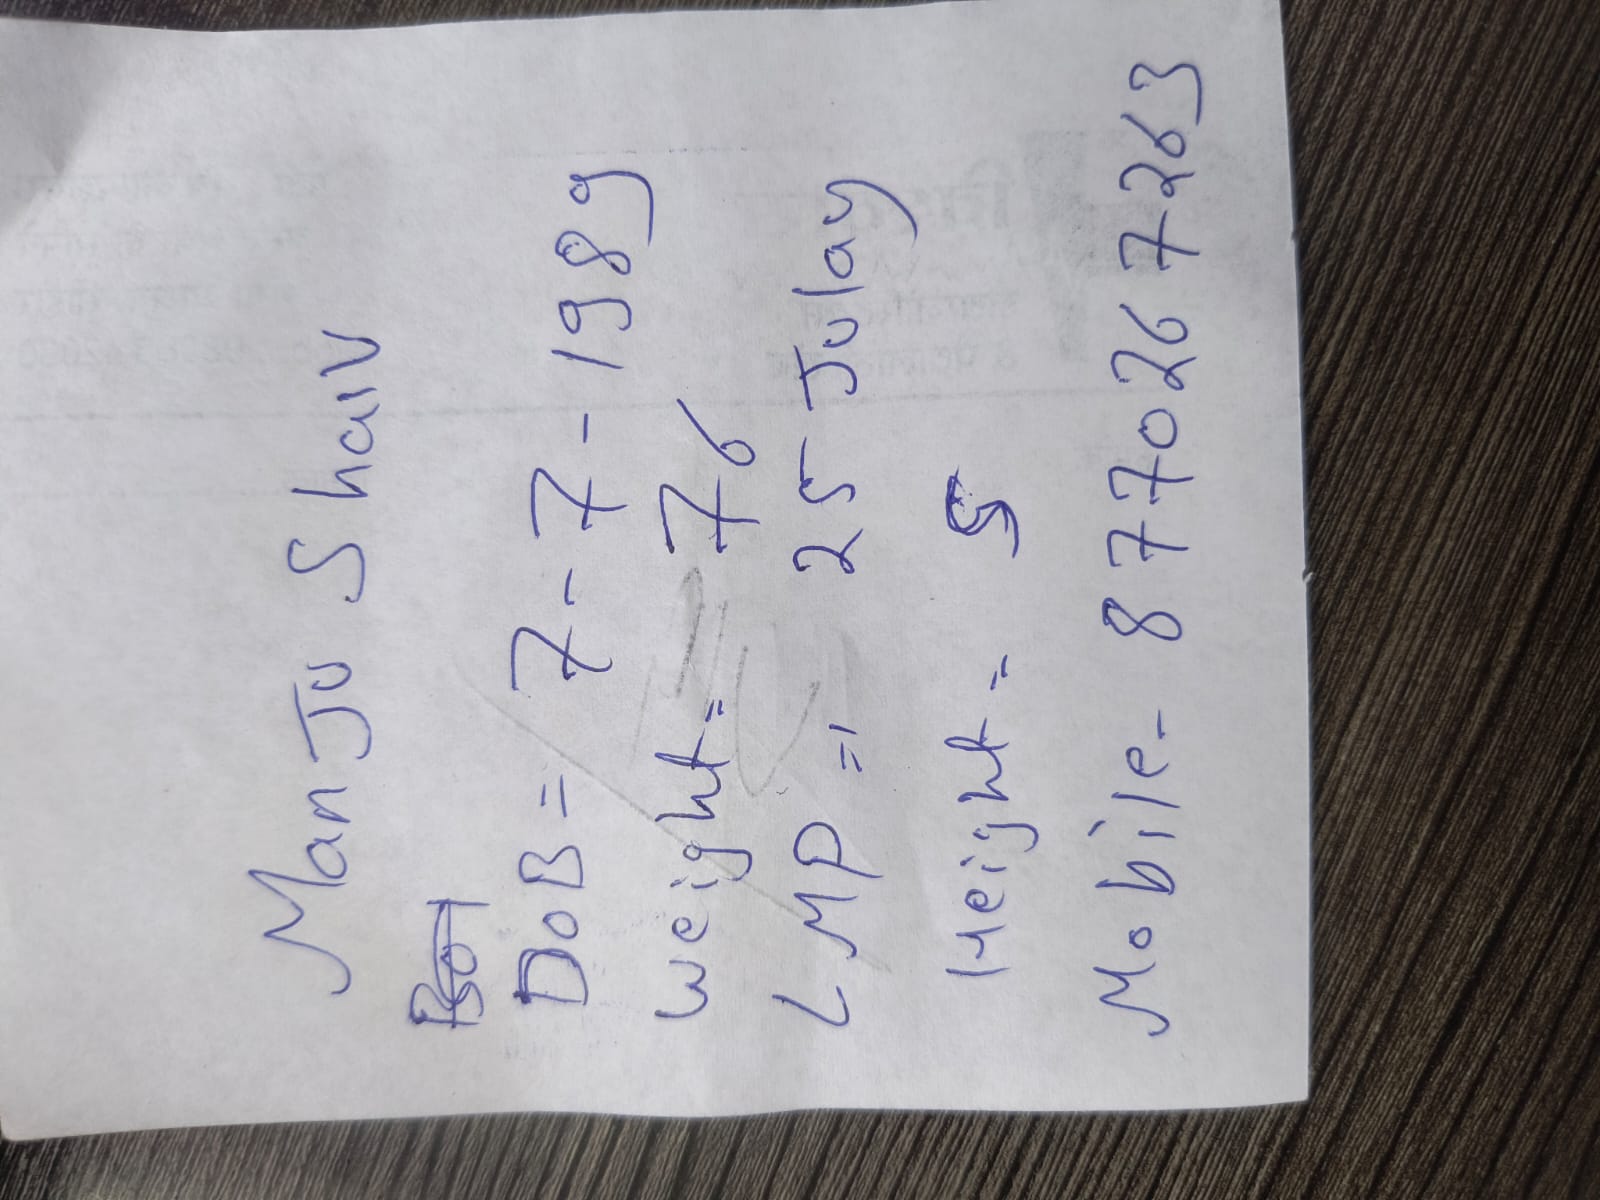 ManJu Shaiv
DoB = 7-7-1989
weight = 76
LMP = 25 Julay
Height = 5
Mobile- 8770267263